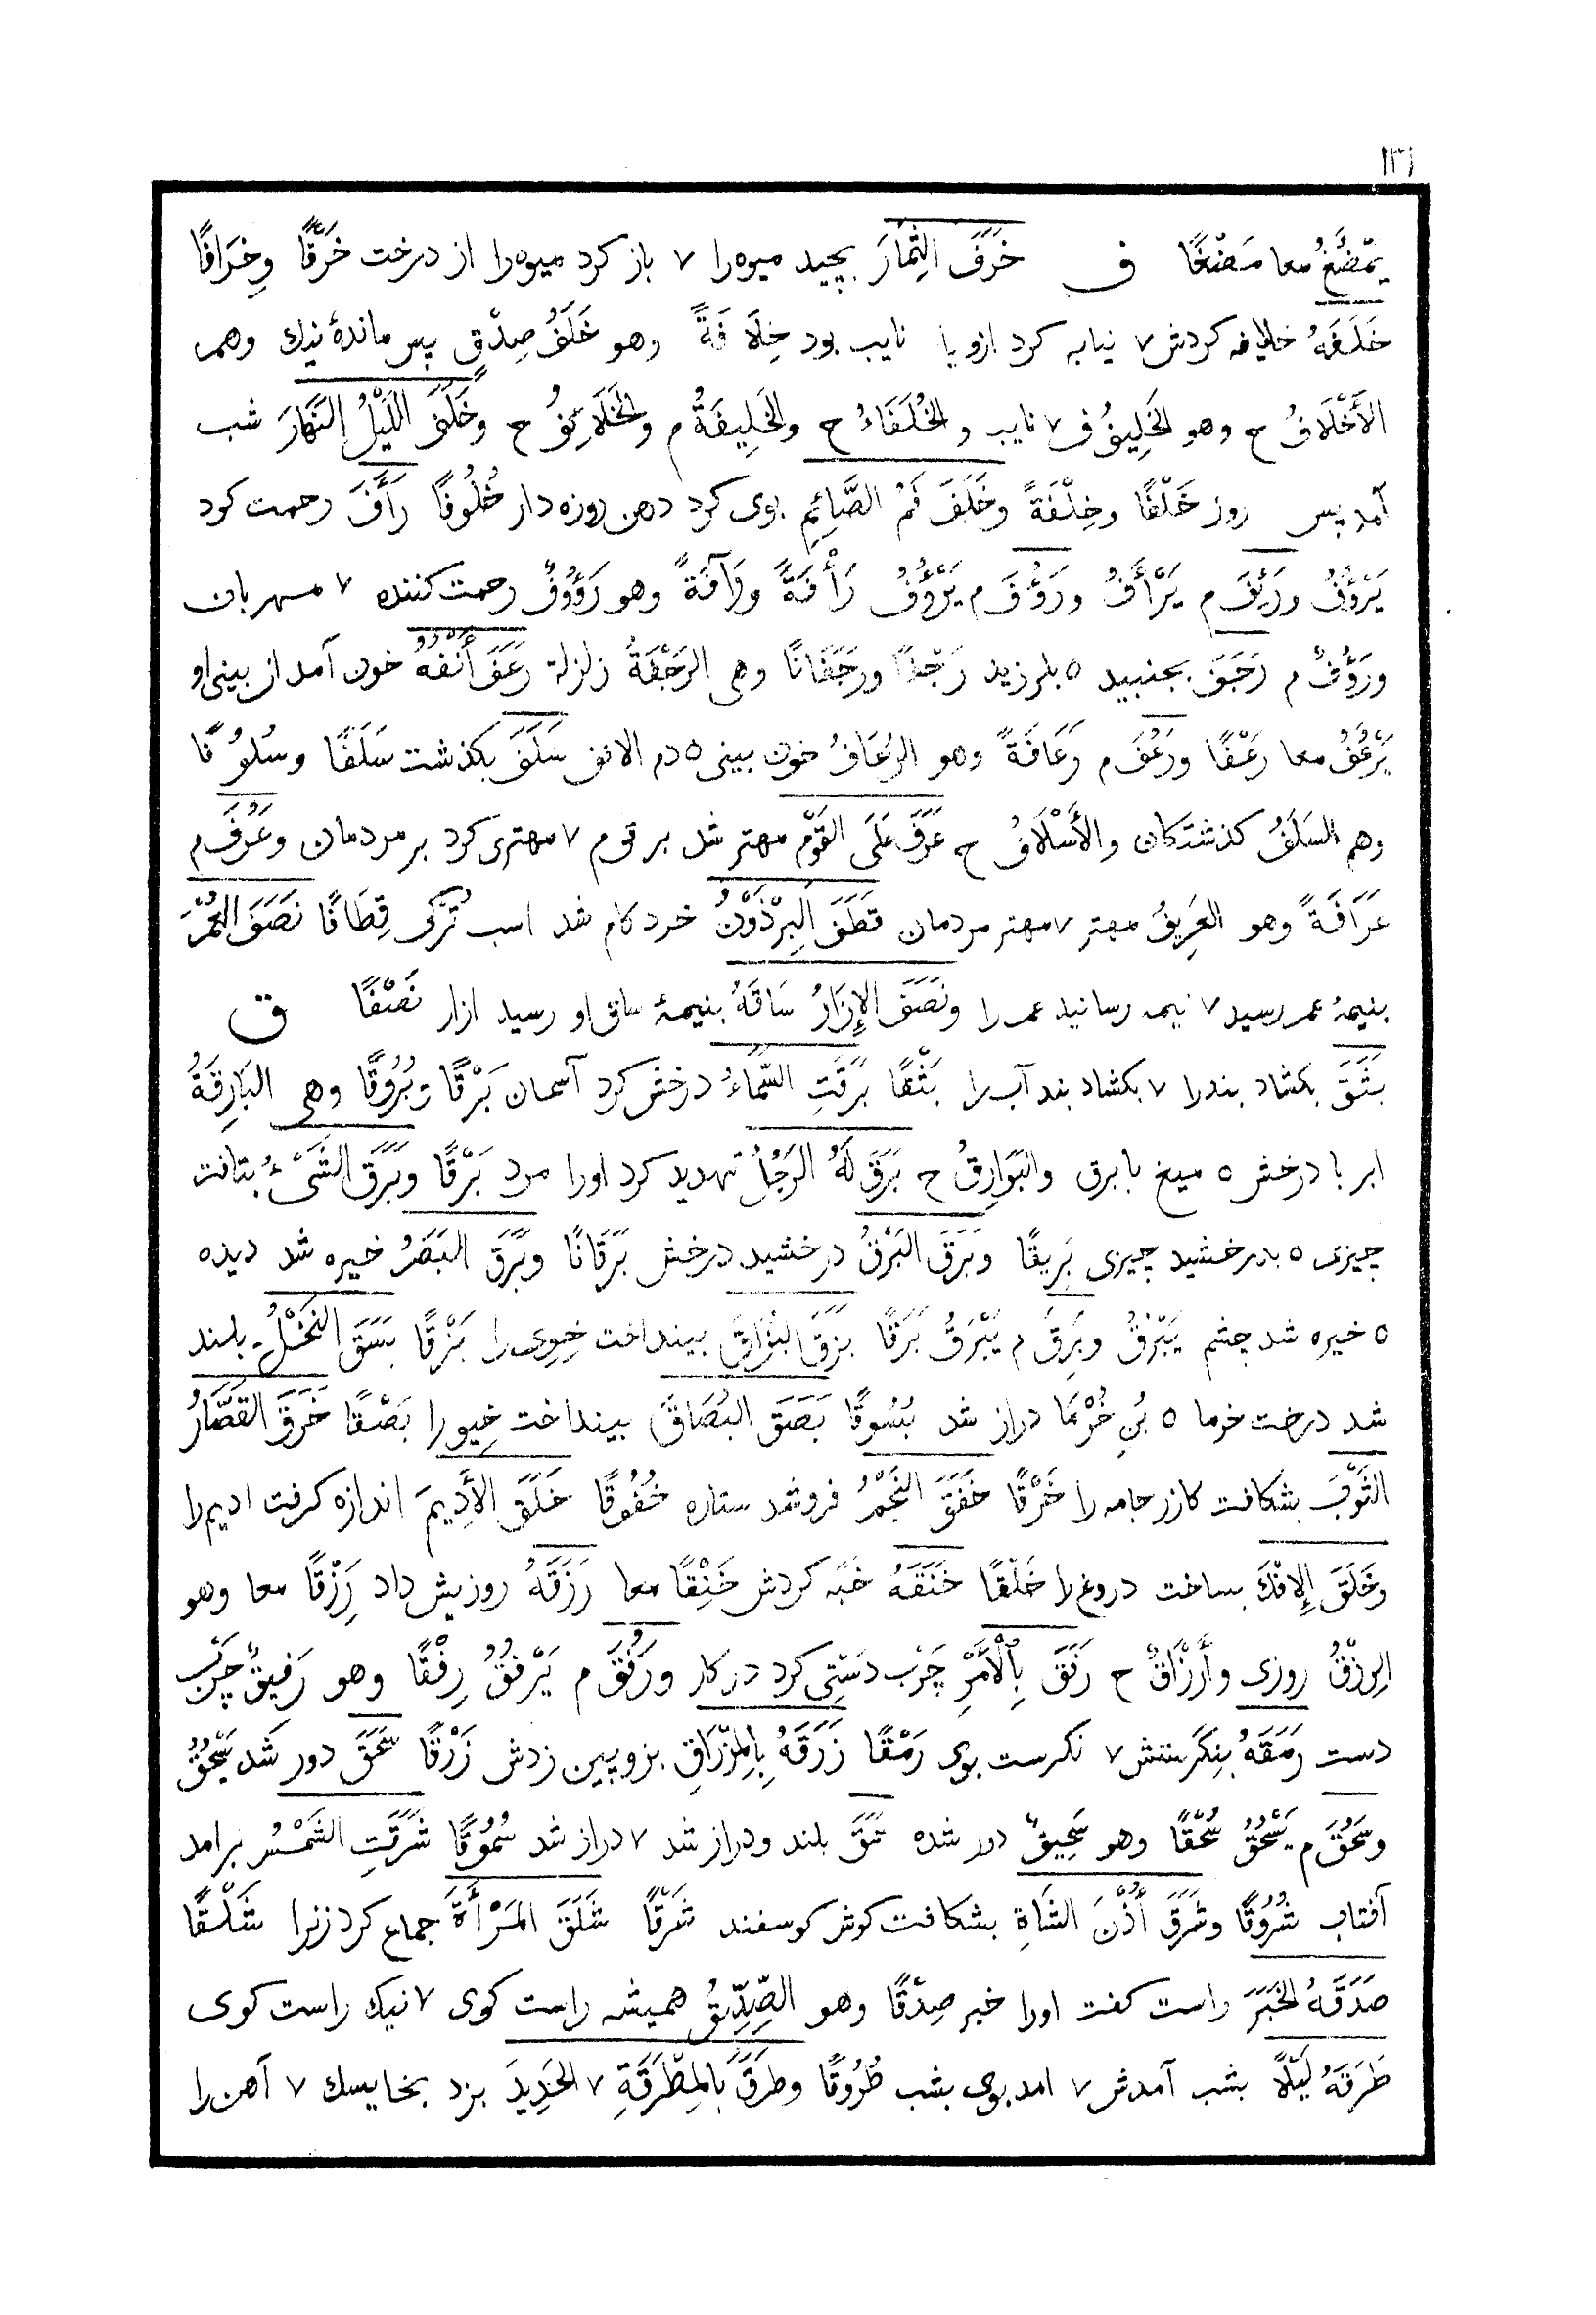 ١٣١
يَمْضُغُ معا مَضْغًا ف خَرَفَ الثِّمَارَ بچيد ميوه را ٧ باز كرد ميوه را از درخت خَرْفًا وخِرَافًا
خَلَفَهُ خليفه كردش ٧ نيابه كرد ازو يا نايب بود خِلَافَةً وهو خَلَفُ صِدْقٍ پس ماندهٔ نيك وهم
الأَخْلَافُ ح وهو الخَلِيفُ ف ٧ نايب والخُلَفَاءُ ح والخَلِيفَةُ م والخَلَائِفُ ح وخَلَفَ اللَّيْلُ النَّهَارَ شب
آمد پس روز خَلْفًا وخِلْفَةً وخَلَفَ فَمُ الصَّائِمِ بوى كرد دهن روزه دار خُلُوفًا رَأَفَ رحمت كرد
يَرْؤُفُ ورَئِفَ م يَرْأَفُ ورَؤُفَ م يَرْؤُفُ رَأْفَةً ورَآفَةً وهو رَؤُوفٌ رحمت كننده ٧ مهربان
ورَؤُفٌ م رَجَفَ بجنبيد ٥ بلرزيد رَجْفًا ورَجَفَانًا وهي الرَجْفَةُ زلزلة رَعَفَ أَنْفُهُ خون آمد از بينى او
يَرْعُفُ معا رَعْفًا ورَعُفَ م رَعَافَةً وهو الرُعَافُ خون بينى ٥ دم الانف سَلَفَ بكذشت سَلَفًا وسُلُوفًا
وهم السَلَفُ كذشتكان والأَسْلَافُ ح عَرَفَ عَلَى القَوْمِ مهتر شد بر قوم ٧ مهترى كرد بر مردمان وعَرُفَ م
عَرَافَةً وهو العَرِيفُ مهتر ٧ مهتر مردمان قَطَفَ البِرْذَوْنُ خرد كام شد اسب تُرْكى قِطَافًا نَصَفَ العُمْرَ
بنيمهٔ عمر رسيد ٧ نيمه رسانيد عمر را ونَصَفَ الإِزَارُ سَاقَهُ بنيمهٔ ساق او رسيد ازار نَصْفًا ق
بَثَقَ بكشاد بند را ٧ بكشاد بند آب را بَثْقًا بَرَقَتِ السَّمَاءُ درخش كرد آسمان بَرْقًا وَبُرُوقًا وهي البَارِقَةُ
ابر با درخش ٥ ميغ با برق والبَوَارِقُ ح بَرَقَ لَهُ الرَجُلُ تهديد كرد اورا مرد بَرْقًا وبَرَقَ الشَىْءُ بتافت
چيزى ٥ بدرخشيد چيزى بَرِيقًا وبَرَقَ البَرْقُ درخشيد درخش بَرَقَانًا وبَرَقَ البَصَرُ خيره شد ديده
٥ خيره شد چشم يَبْرُقُ وبَرِقَ م يَبْرَقُ بَرَقًا بَزَقَ البُزَاقَ بينداخت خِيوى را بَزْقًا بَسَقَ النَخْلُ بلند
شد درخت خرما ٥ بُنِ خُرْمَا دراز شد بُسُوقًا بَصَقَ البُصَاقَ بينداخت خِيو را بَصْقًا خَرَقَ القَصَّارُ
الثَوْبَ بشكافت كازر جامه را خَرْقًا خَفَقَ النَجْمُ فروشد ستاره خُفُوقًا خَلَقَ الأَدِيمَ اندازه كرفت اديم را
وخَلَقَ الإِفْكَ بساخت دروغ را خَلْقًا خَنَقَهُ خبَه كردش خَنِقًا معا رَزَقَهُ روزيش داد رِزْقًا معا وهو
الرِزْقُ روزى وأَرْزَاقٌ ح رَفَقَ بِالأَمْرِ چَرْب دَسْتى كرد در كار ورَفُقَ م يَرْفُقُ رِفْقًا وهو رَفِيقٌ چَرْب
دست رَمَقَهُ بِنِكَرستش ٧ نكرست بوى رَمْقًا زَرَقَهُ بِالمِزْرَاقِ بزوپين زدش زَرْقًا سَحَقَ دور شد يَسْحُقُ
وسَحُقَ م يَسْحُقُ سُحْقًا وهو سَحِيقٌ دور شده سَمَقَ بلند ودراز شد ٧ دراز شد سُمُوقًا شَرَقَتِ الشَمْسُ برامد
آفتاب شُرُوقًا وشَرَقَ أُذْنَ الشَاةِ بشكافت كوش كوسفند شَرْقًا شَلَقَ المَرْأَةَ جماع كرد زنرا شَلْقًا
صَدَقَهُ الخَبَرَ راست كفت اورا خبر صِدْقًا وهو الصِّدِّيقُ هميشه راست كوى ٧ نيك راست كوى
طَرَقَهُ لَيْلًا بشب آمدش ٧ امد بوى بشب طُرُوقًا وطَرَقَ بِالمِطْرَقَةِ ٧ الحَدِيدَ بزد بخايسك ٧ آهن را